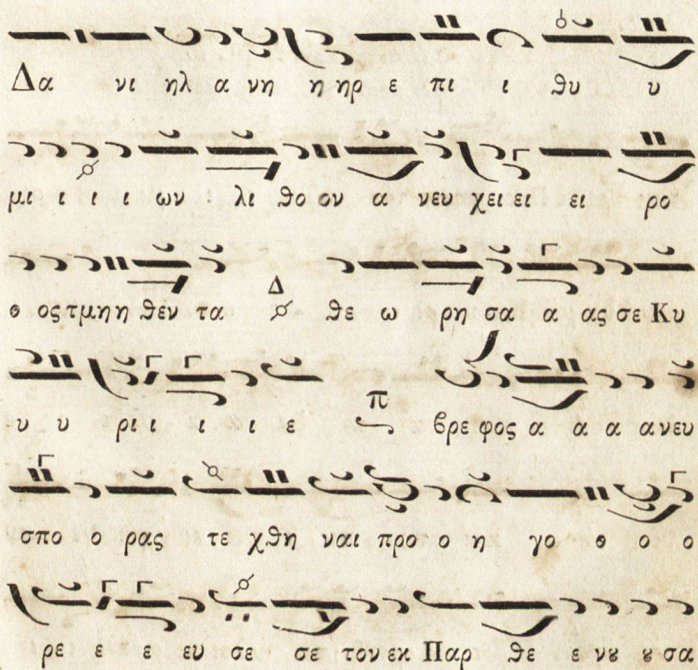 Δα νι ηλ α νη η ηρ ε πι ι θυ υ
μι ι ι ι ων λι θο ον α νευ χει ει ει ρο
ο ος τμη η θεν τα Δ θε ω ρη σα α ας σε Κυ
υ υ ρι ι ι ι ε π βρε φος α α α α νευ
σπο ο ρας τε χθη ναι προ ο η γο ο ο ο
ρε ε ε ευ σε σε τον εκ Παρ θε ε νȣ ȣ σα